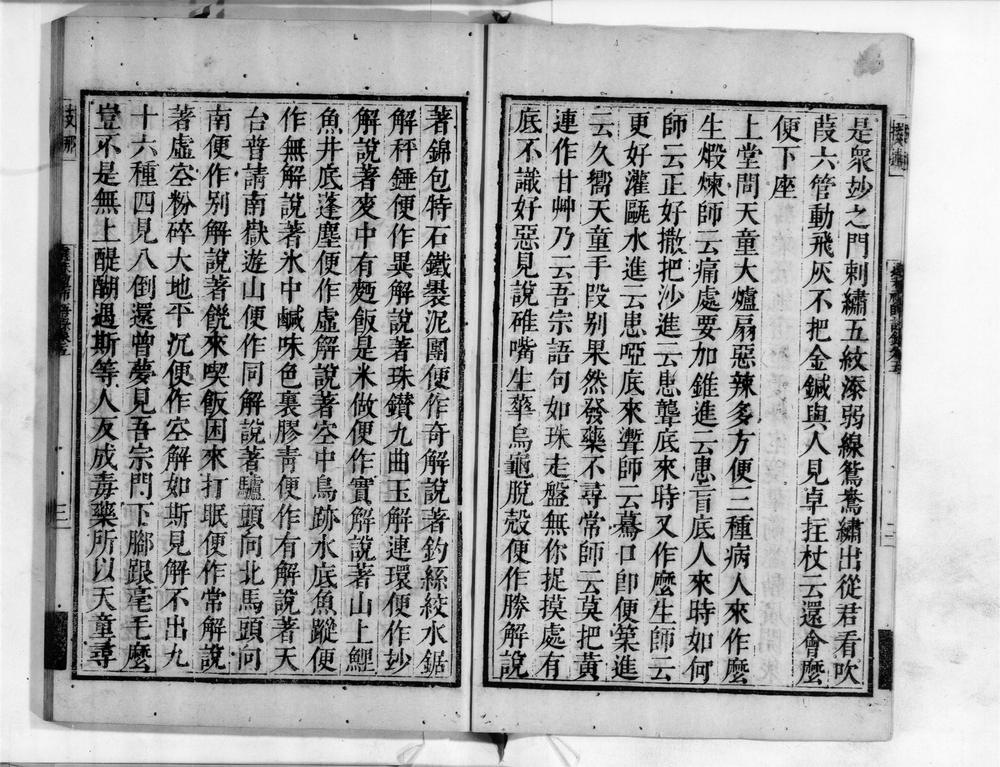 是衆玅之門刺繡五紋添弱線鴛鴦繡出從君看吹
葭六管動飛灰不把金鍼與人見卓拄杖云還會麼
便下座
上堂問天童大爐扇惡辣多方便三種病人來作麼
生煅煉師云痛處要加錐進云患盲底人來時如何
師云正好撒把沙進云患聾底來時又作麼生師云
更好灌甌水進云患啞底來聻師云驀口卽便築進
云久嚮天童手段别果然發藥不尋常師云莫把黃
連作甘艸乃云吾宗語句如珠走盤無你捉摸處有
底不識好惡見說碓嘴生華烏龜脫殻便作勝解說
著錦包特石鐵褁泥團便作奇解說著釣絲絞水鋸
解秤錘便作異解說著珠鑽九曲玉解連環便作玅
解說著麥中有麵飯是米做便作實解說著山上鯉
魚井底蓬塵便作虛解說著空中鳥跡水底魚蹤便
作無解說著氷中鹹味色裏膠青便作有解說著天
台普請南嶽遊山便作同解說著驢頭向北馬頭向
南便作别解說著饑來喫飯困來打眠便作常解說
著虛空粉碎大地平沉便作空解如斯見解不出九
十六種四見八倒還曾夢見吾宗門下腳跟毫毛麼
豈不是無上醍醐遇斯等人友成毒藥所以天童尋
三